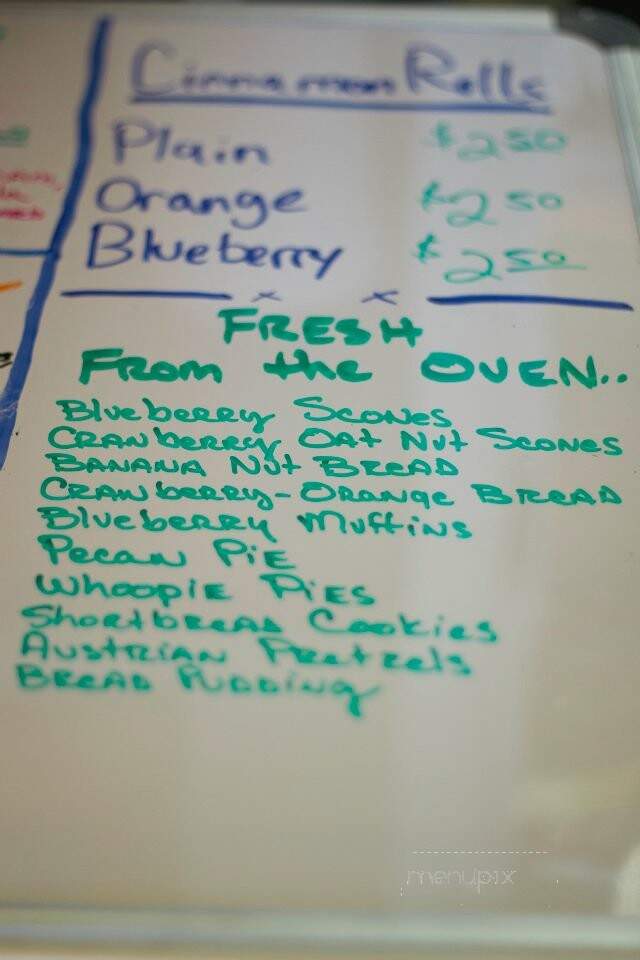 Cinnamon Rolls
Plain $2.50
Orange $2.50
Blueberry $2.50
FRESH
From the OVEN..
Blueberry Scones
Cranberry Oat Nut Scones
Banana Nut Bread
Cranberry-Orange Bread
Blueberry Muffins
Pecan Pie
Whoopie Pies
Shortbread Cookies
Austrian Pretzels
Bread Pudding
menupix